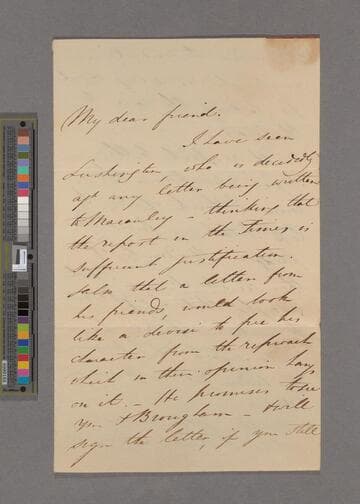 My dear friend.
I have seen
Lushington, who is decidedly
agt any letter being written
to Macauley – thinking that
the report in the Times is
sufficient justification.
also that a letter from
his friends, would look
like a device to free his
character from the reproach
which in their opinion hangs
on it. – He promises to see
you & Brougham – & will
sign the letter, if you still